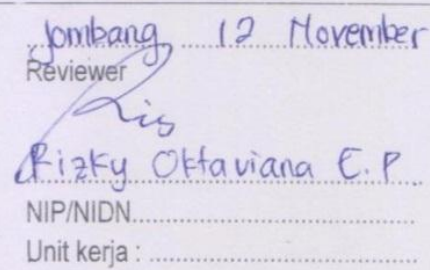 Jombang 12 November
Reviewer
Rizky Oktaviana E.P
NIP/NIDN..............................................
Unit kerja : ............................................